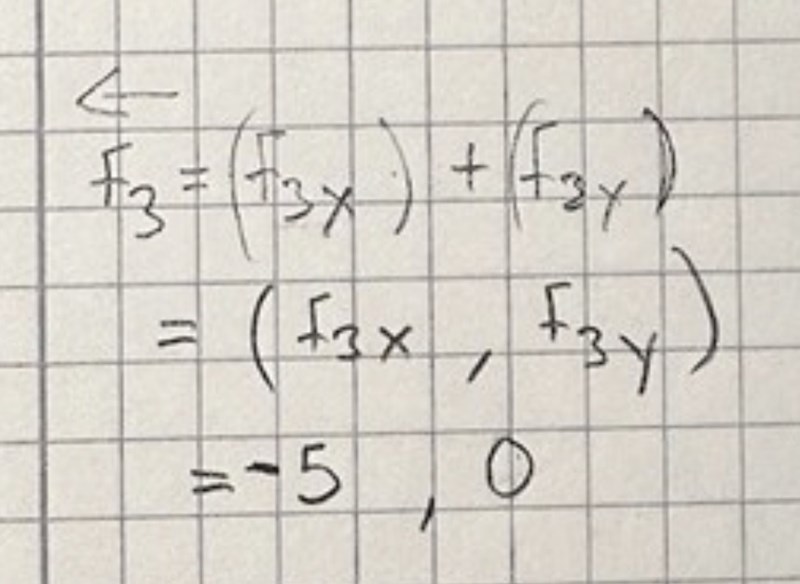 ←
F₃ = (F₃ₓ) + (F₃ᵧ)
= (F₃ₓ , F₃ᵧ)
= -5 , 0